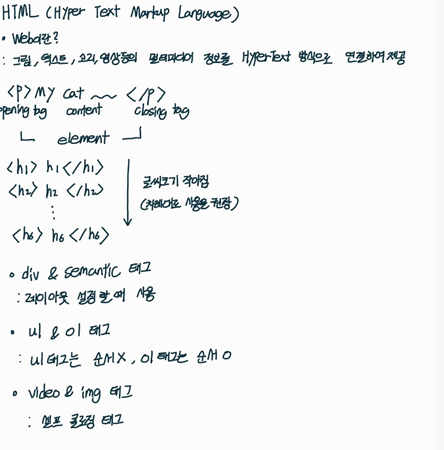 HTML (Hyper Text Markup Language)
• Web이란?
: 그림, 텍스트, 소리, 영상등의 멀티미디어 정보를 HyperText 방식으로 연결하여 제공
<p> my cat ~~ </p>
opening tag content closing tag
element
<h1> h1 </h1>
<h2> h2 </h2>
⋮
<h6> h6 </h6>
글씨크기 작아짐
(차례대로 사용을 권장)
• div & semantic 태그
: 레이아웃 설정할 때 사용
• ul & ol 태그
: ul 태그는 순서 X, ol 태그는 순서 O
• video & img 태그
: 셀프 클로징 태그